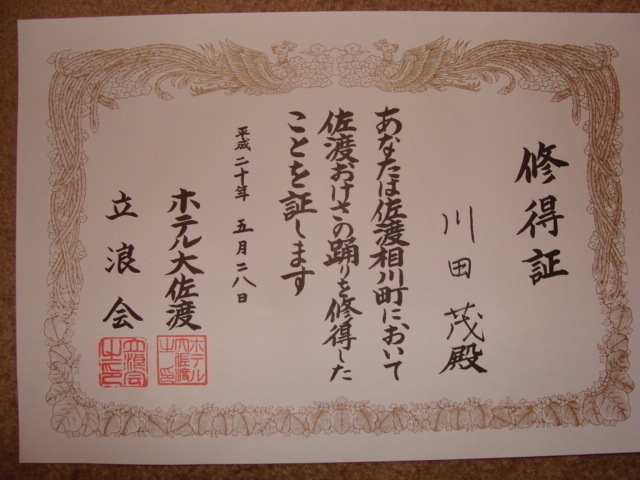 修得証
川田茂殿
あなたは佐渡相川町において
佐渡おけさの踊りを修得した
ことを証します
平成二十年 五月二八日
ホテル大佐渡
立浪会
ホテル大佐渡之印
立浪会之印